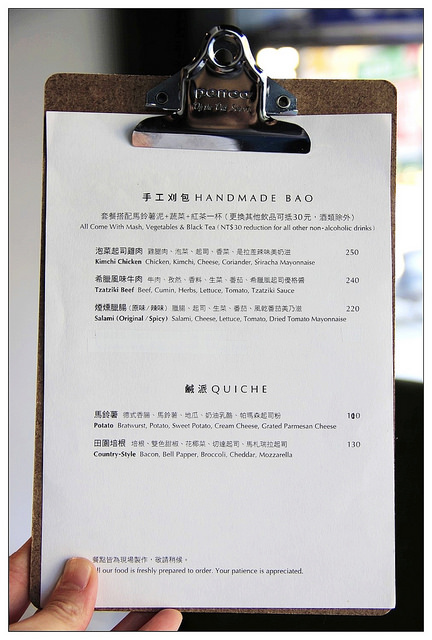 penco
手工刈包 HANDMADE BAO
套餐搭配馬鈴薯泥+蔬菜+紅茶一杯 (更換其他飲品可抵30元，酒類除外)
All Come With Mash, Vegetables & Black Tea (NT$30 reduction for all other non-alcoholic drinks)
泡菜起司雞肉 雞腿肉、泡菜、起司、香菜、是拉差辣味美奶滋 250
Kimchi Chicken Chicken, Kimchi, Cheese, Coriander, Sriracha Mayonnaise
希臘風味牛肉 牛肉、孜然、香料、生菜、番茄、希臘風起司優格醬 240
Tzatziki Beef Beef, Cumin, Herbs, Lettuce, Tomato, Tzatziki Sauce
煙燻臘腸 (原味/辣味) 臘腸、起司、生菜、番茄、風乾番茄美乃滋 220
Salami (Original / Spicy) Salami, Cheese, Lettuce, Tomato, Dried Tomato Mayonnaise
鹹派 QUICHE
馬鈴薯 德式香腸、馬鈴薯、地瓜、奶油乳酪、帕瑪森起司粉
Potato Bratwurst, Potato, Sweet Potato, Cream Cheese, Grated Parmesan Cheese
田園培根 培根、雙色甜椒、花椰菜、切達起司、馬札瑞拉起司 130
Country-Style Bacon, Bell Papper, Broccoli, Cheddar, Mozzarella
餐點皆為現場製作，敬請稍候。
ll our food is freshly prepared to order. Your patience is appreciated.